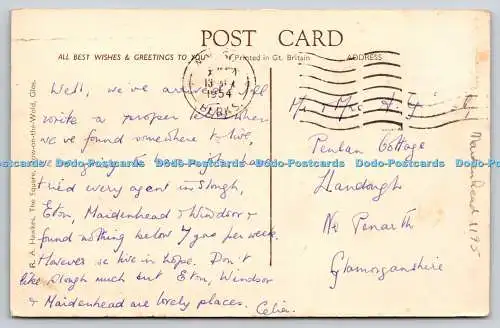 POST CARD
ALL BEST WISHES & GREETINGS TO YOU
Printed in Gt. Britain
ADDRESS
1954
BERKS
Well, we've arrived. I'll
write a proper letter when
we've found somewhere to live,
we've
tried every agent in Slough,
Eton, Maidenhead & Windsor &
found nothing below 7 gns per week.
However we live in hope. Don't
like Slough much but Eton, Windsor
& Maidenhead are lovely places.
Celia.
Mr & Mrs
Penlan Cottage
Llandough
Nr Penarth
Glamorganshire
R. A. Hawkes, The Square, Stow-on-the-Wold, Glos.
Maidenhead 1195
Dodo-Postcards Dodo-Postcards Dodo-Postcards Dodo-Postcards Dodo-Postcards Dodo-Postcards